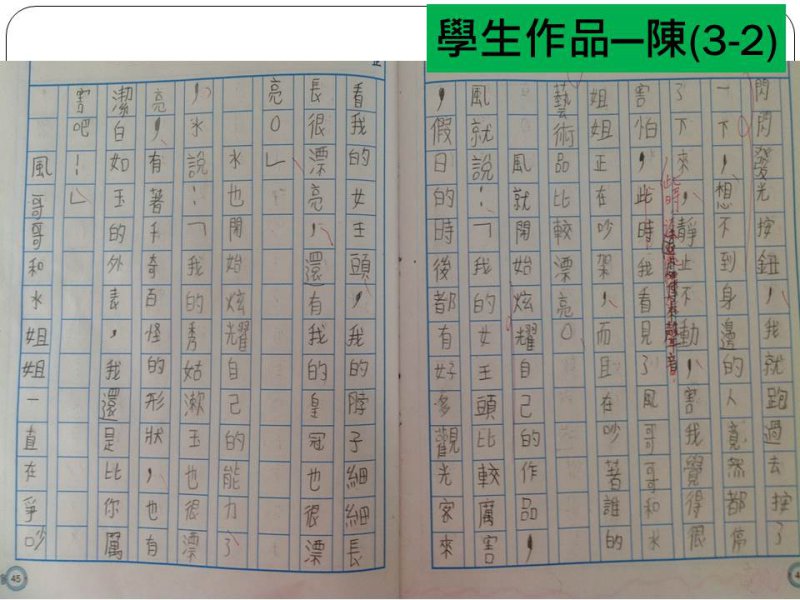 學生作品—陳(3-2)
閃閃發光按鈕，我就跑過去按了
一下，想不到身邊的人竟然都停
了下來，靜止不動，害我覺得很
害怕，此時我看見了風哥哥和水
此時
聲音
姐姐正在吵架，而且在吵著誰的
藝術品比較漂亮。
風就開始炫耀自己的作品，
風就說：「我的女王頭比較厲害
，假日的時後都有好多觀光家來
看我的女王頭，我的脖子細細長
長很漂亮，還有我的皇冠也很漂
亮。」
水也開始炫耀自己的能力了
，水說：「我的秀姑漱玉也很漂
亮，有著千奇百怪的形狀，也有
潔白如玉的外表，我還是比你厲
害吧！」
風哥哥和水姐姐一直在爭吵
45